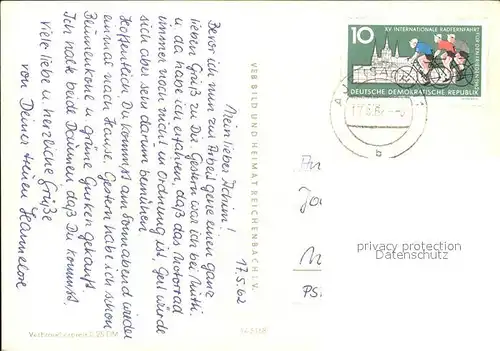 17.5.62
Mein lieber Jochim!
Bevor ich nun zur Arbeit gehe einen ganz
lieben Gruß zu Dir. Gestern war ich bei Mutti
u. da habe ich erfahren, daß das Motorrad
immer noch nicht in Ordnung ist. Gert würde
sich aber sehr darum bemühen.
Hoffentlich Du kommst am Sonnabend wieder
einmal nach Hause. Gestern habe ich schon
Blumenkohl u grüne Gurken gekauft.
Ich halte beide Daumen, daß Du kommst.
Viele liebe u herzliche Grüße
von Deiner treuen Hannelore
VEB BILD UND HEIMAT REICHENBACH I. V.
Verbraucherpreis 0,25 DM
10
XV. INTERNATIONALE RADFERNFAHRT
FÜR DEN FRIEDEN
DEUTSCHE DEMOKRATISCHE REPUBLIK
17.5.62
b
An
PSF
privacy protection
Datenschutz